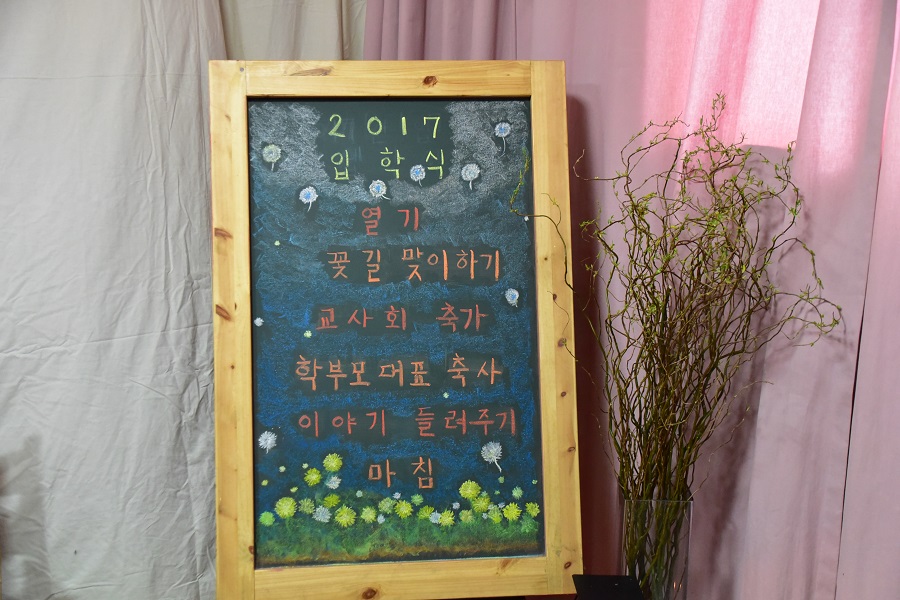 2017
입학식
열기
꽃길 맞이하기
교사회 축가
학부모대표 축사
이야기 들려주기
마침